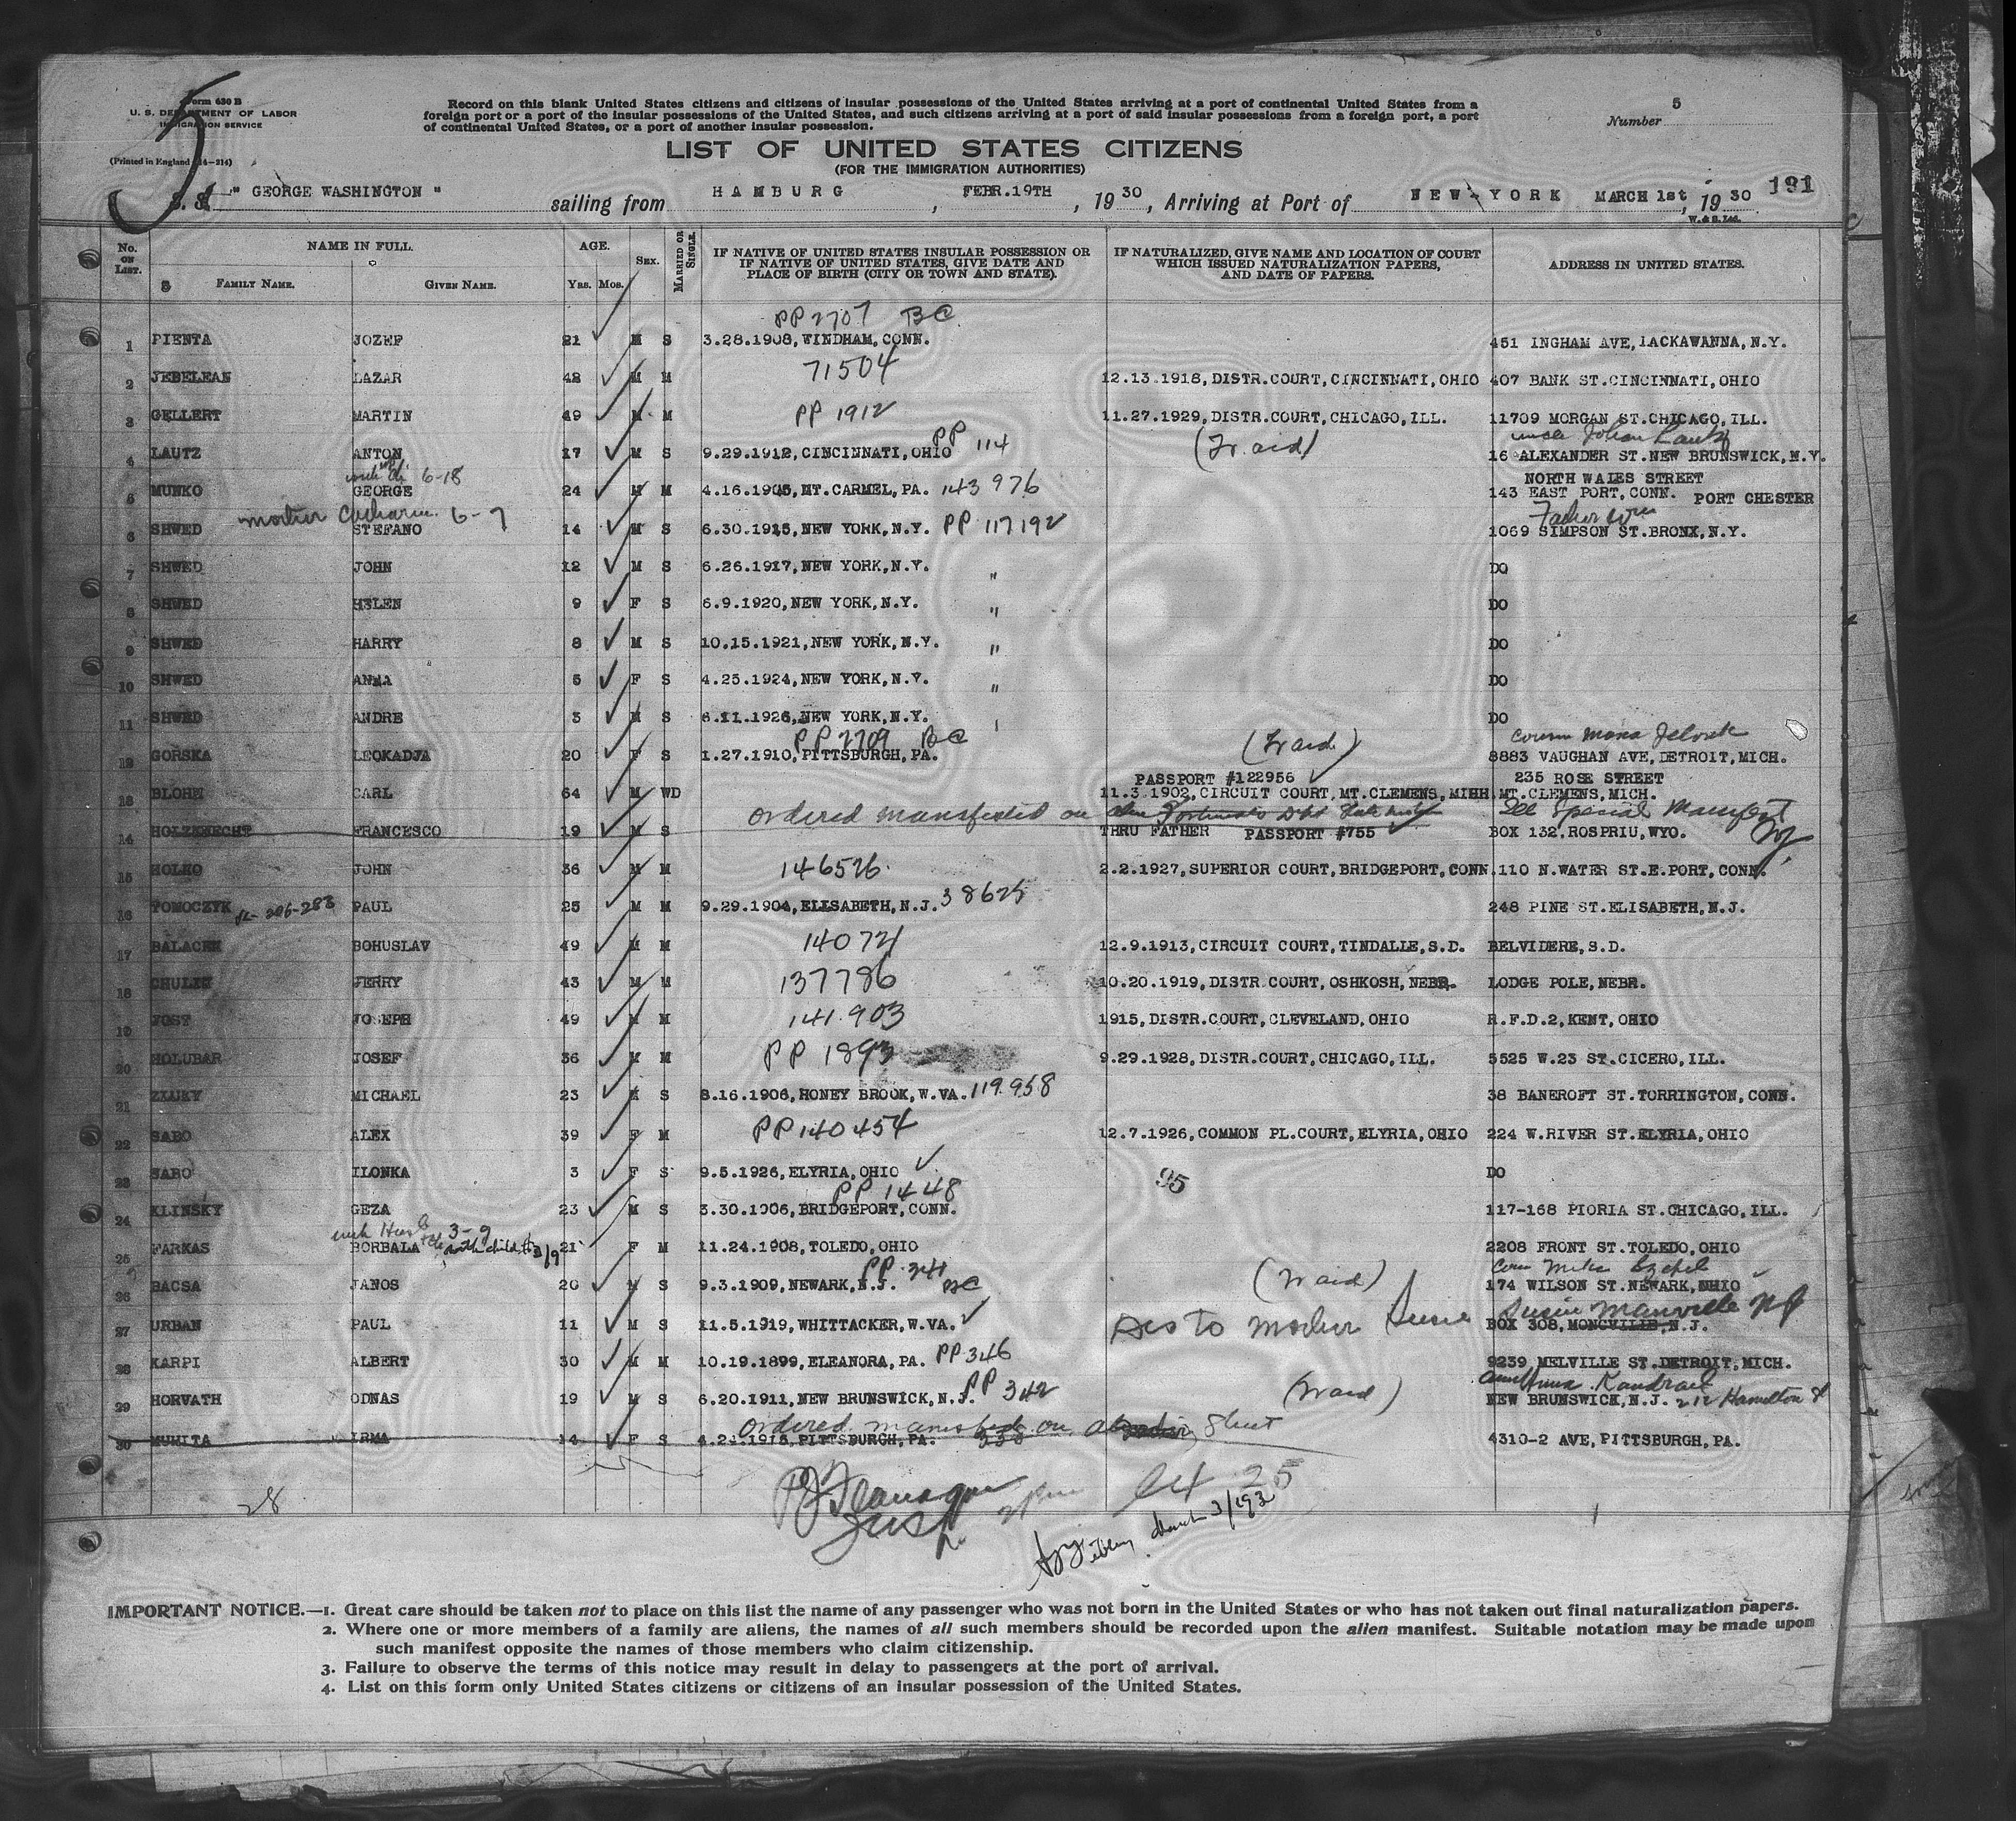 5
Form 630 B
U. S. DEPARTMENT OF LABOR
IMMIGRATION SERVICE
(Printed in England 24-214)
Record on this blank United States citizens and citizens of insular possessions of the United States arriving at a port of continental United States from a
foreign port or a port of the insular possessions of the United States, and such citizens arriving at a port of said insular possessions from a foreign port, a port
of continental United States, or a port of another insular possession.
Number 5
LIST OF UNITED STATES CITIZENS
(FOR THE IMMIGRATION AUTHORITIES)
S. S. "GEORGE WASHINGTON" sailing from HAMBURG, FEBR.19TH, 1930, Arriving at Port of NEW-YORK MARCH 1st, 1930 191
W. & S. Ltd.
No. ON LIST. NAME IN FULL. AGE. SEX. MARRIED OR SINGLE. IF NATIVE OF UNITED STATES INSULAR POSSESSION OR IF NATIVE OF UNITED STATES, GIVE DATE AND PLACE OF BIRTH (CITY OR TOWN AND STATE). IF NATURALIZED, GIVE NAME AND LOCATION OF COURT WHICH ISSUED NATURALIZATION PAPERS, AND DATE OF PAPERS. ADDRESS IN UNITED STATES.
FAMILY NAME. GIVEN NAME. YRS. MOS.
PP 2707 BC
1 PIENTA JOZEF 21 M S 3.28.1908, WINDHAM, CONN. 451 INGHAM AVE, LACKAWANNA, N.Y.
2 JEBELEAN LAZAR 42 M M 71504 12.13.1918, DISTR.COURT, CINCINNATI, OHIO 407 BANK ST.CINCINNATI, OHIO
3 GELLERT MARTIN 49 M M PP 1912 11.27.1929, DISTR.COURT, CHICAGO, ILL. 11709 MORGAN ST.CHICAGO, ILL.
uncle Johan Lautz
4 LAUTZ ANTON 17 M S 9.29.1912, CINCINNATI, OHIO PP 114 (Tr. aid) 16 ALEXANDER ST.NEW BRUNSWICK, N.Y.
6-18 NORTH WALES STREET
5 MUNKO GEORGE 24 M M 4.16.1905, MT. CARMEL, PA. 143976 143 EAST PORT, CONN. PORT CHESTER
mother Catharine 6-7 Father
6 SHWED STEFANO 14 M S 6.30.1915, NEW YORK, N.Y. PP 117192 1069 SIMPSON ST.BRONX, N.Y.
7 SHWED JOHN 12 M S 6.26.1917, NEW YORK, N.Y. " DO
8 SHWED HELEN 9 F S 6.9.1920, NEW YORK, N.Y. " DO
9 SHWED HARRY 8 M S 10.15.1921, NEW YORK, N.Y. " DO
10 SHWED ANNA 5 F S 4.25.1924, NEW YORK, N.Y. " DO
11 SHWED ANDRE 3 M S 6.11.1926, NEW YORK, N.Y. DO
PP 2709 BC (Tr aid)
12 GORSKA LEOKADJA 20 F S 1.27.1910, PITTSBURGH, PA. 8883 VAUGHAN AVE, DETROIT, MICH.
PASSPORT #122956 235 ROSE STREET
13 BLOHM CARL 64 M WD 11.3.1902, CIRCUIT COURT, MT.CLEMENS, MIHH. MT.CLEMENS, MICH.
ordered manifested on See Special Manifest
14 HOLZKNECHT FRANCESCO 19 M S THRU FATHER PASSPORT #755 BOX 132, ROSPRIU, WYO.
15 HOLKO JOHN 36 M M 146526 2.2.1927, SUPERIOR COURT, BRIDGEPORT, CONN. 110 N.WATER ST.E.PORT, CONN.
16 TOMOCZYK PAUL 25 M M 9.29.1904, ELISABETH, N.J. 38625 248 PINE ST.ELISABETH, N.J.
17 BALACEK BOHUSLAV 49 M M 14074 12.9.1913, CIRCUIT COURT, TINDALLE, S.D. BELVIDERE, S.D.
18 JERRY 43 M M 137786 10.20.1919, DISTR.COURT, OSHKOSH, NEBR. LODGE POLE, NEBR.
19 JOST JOSEPH 49 M M 141.903 1915, DISTR.COURT, CLEVELAND, OHIO R.F.D.2, KENT, OHIO
20 HOLUBAR JOSEF 36 M M PP 1893 9.29.1928, DISTR.COURT, CHICAGO, ILL. 5525 W.23 ST.CICERO, ILL.
21 MICHAEL 23 M S 8.16.1906, HONEY BROOK, W.VA. 119.958 38 BANEROFT ST.TORRINGTON, CONN.
22 SABO ALEX 39 F M PP 140454 12.7.1926, COMMON PL.COURT, ELYRIA, OHIO 224 W.RIVER ST.ELYRIA, OHIO
23 SABO ILONKA 3 F S 9.5.1926, ELYRIA, OHIO 95 DO
PP 1448
24 KLINSKY GEZA 23 M S 3.30.1906, BRIDGEPORT, CONN. 117-168 PIORIA ST.CHICAGO, ILL.
3-9
25 FARKAS BORBALA 21 F M 11.24.1908, TOLEDO, OHIO 2208 FRONT ST.TOLEDO, OHIO
PP 341 BC (Tr aid)
26 BACSA JANOS 20 M S 9.3.1909, NEWARK, N.J. 174 WILSON ST.NEWARK, OHIO
Dis to mother Susie Manville NJ
27 URBAN PAUL 11 M S 11.5.1919, WHITTACKER, W.VA. BOX 308, MONCVILLE, N.J.
28 KARPI ALBERT 30 M M 10.19.1899, ELEANORA, PA. PP 346 9239 MELVILLE ST.DETROIT, MICH.
29 HORVATH ODNAS 19 M S 6.20.1911, NEW BRUNSWICK, N.J. PP 342 (Tr aid) NEW BRUNSWICK, N.J. 212 Hamilton St
ordered manifested on Sheet
30 IRMA 14 F S PITTSBURGH, PA. 4310-2 AVE, PITTSBURGH, PA.
28
IMPORTANT NOTICE.—1. Great care should be taken not to place on this list the name of any passenger who was not born in the United States or who has not taken out final naturalization papers.
2. Where one or more members of a family are aliens, the names of all such members should be recorded upon the alien manifest. Suitable notation may be made upon
such manifest opposite the names of those members who claim citizenship.
3. Failure to observe the terms of this notice may result in delay to passengers at the port of arrival.
4. List on this form only United States citizens or citizens of an insular possession of the United States.